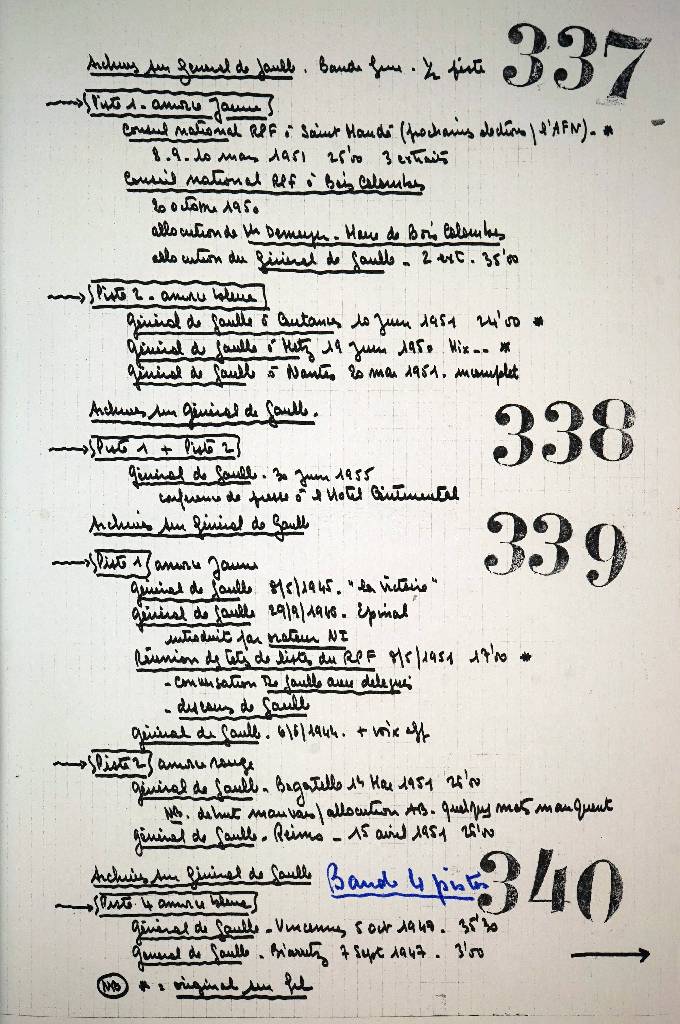 337
Archives sur Général de Gaulle. Bande 1/2 piste
Piste 1 - amorce Jaune
Conseil national RPF à Saint Mandé (prochaines élections / l'AFN) - *
8.9.10 mars 1951 25'00 3 extraits
Conseil national RPF à Bois Colombes
20 octobre 1950
allocution de Mr - Maire de Bois Colombes
allocution du Général de Gaulle - 2 ext. 35'00
Piste 2 - amorce bleue
Général de Gaulle à Coutances 10 Juin 1951 24'00 *
Général de Gaulle à Metz 19 Juin 1950 *
Général de Gaulle à Nantes 20 mai 1951. incomplet
338
Archives sur Général de Gaulle.
Piste 1 + Piste 2
Général de Gaulle. 30 Juin 1955
conférence de presse à l'Hotel Continental
339
Archives sur Général de Gaulle
Piste 1 amorce Jaune
Général de Gaulle 8/5/1945. "La victoire"
Général de Gaulle 29/9/1946. Epinal
introduit par orateur NI
Réunion des tetes de listes du RPF 8/5/1951 17'00 *
- conversation De Gaulle avec délégués
- discours de Gaulle
Général de Gaulle. 6/6/1944. + voix off
Piste 2 amorce rouge
Général de Gaulle - Bagatelle 1er Mai 1951 26'00
NB. début mauvais / allocution AB. quelques mots manquent
Général de Gaulle - Reims - 15 avril 1951 26'00
340
Archives sur Général de Gaulle Bande 4 pistes
Piste 4 amorce bleue
Général de Gaulle - Vincennes 5 oct 1947. 35'30
General de Gaulle - Biarritz 7 Sept 1947. 3'00
NB * = original sur fil